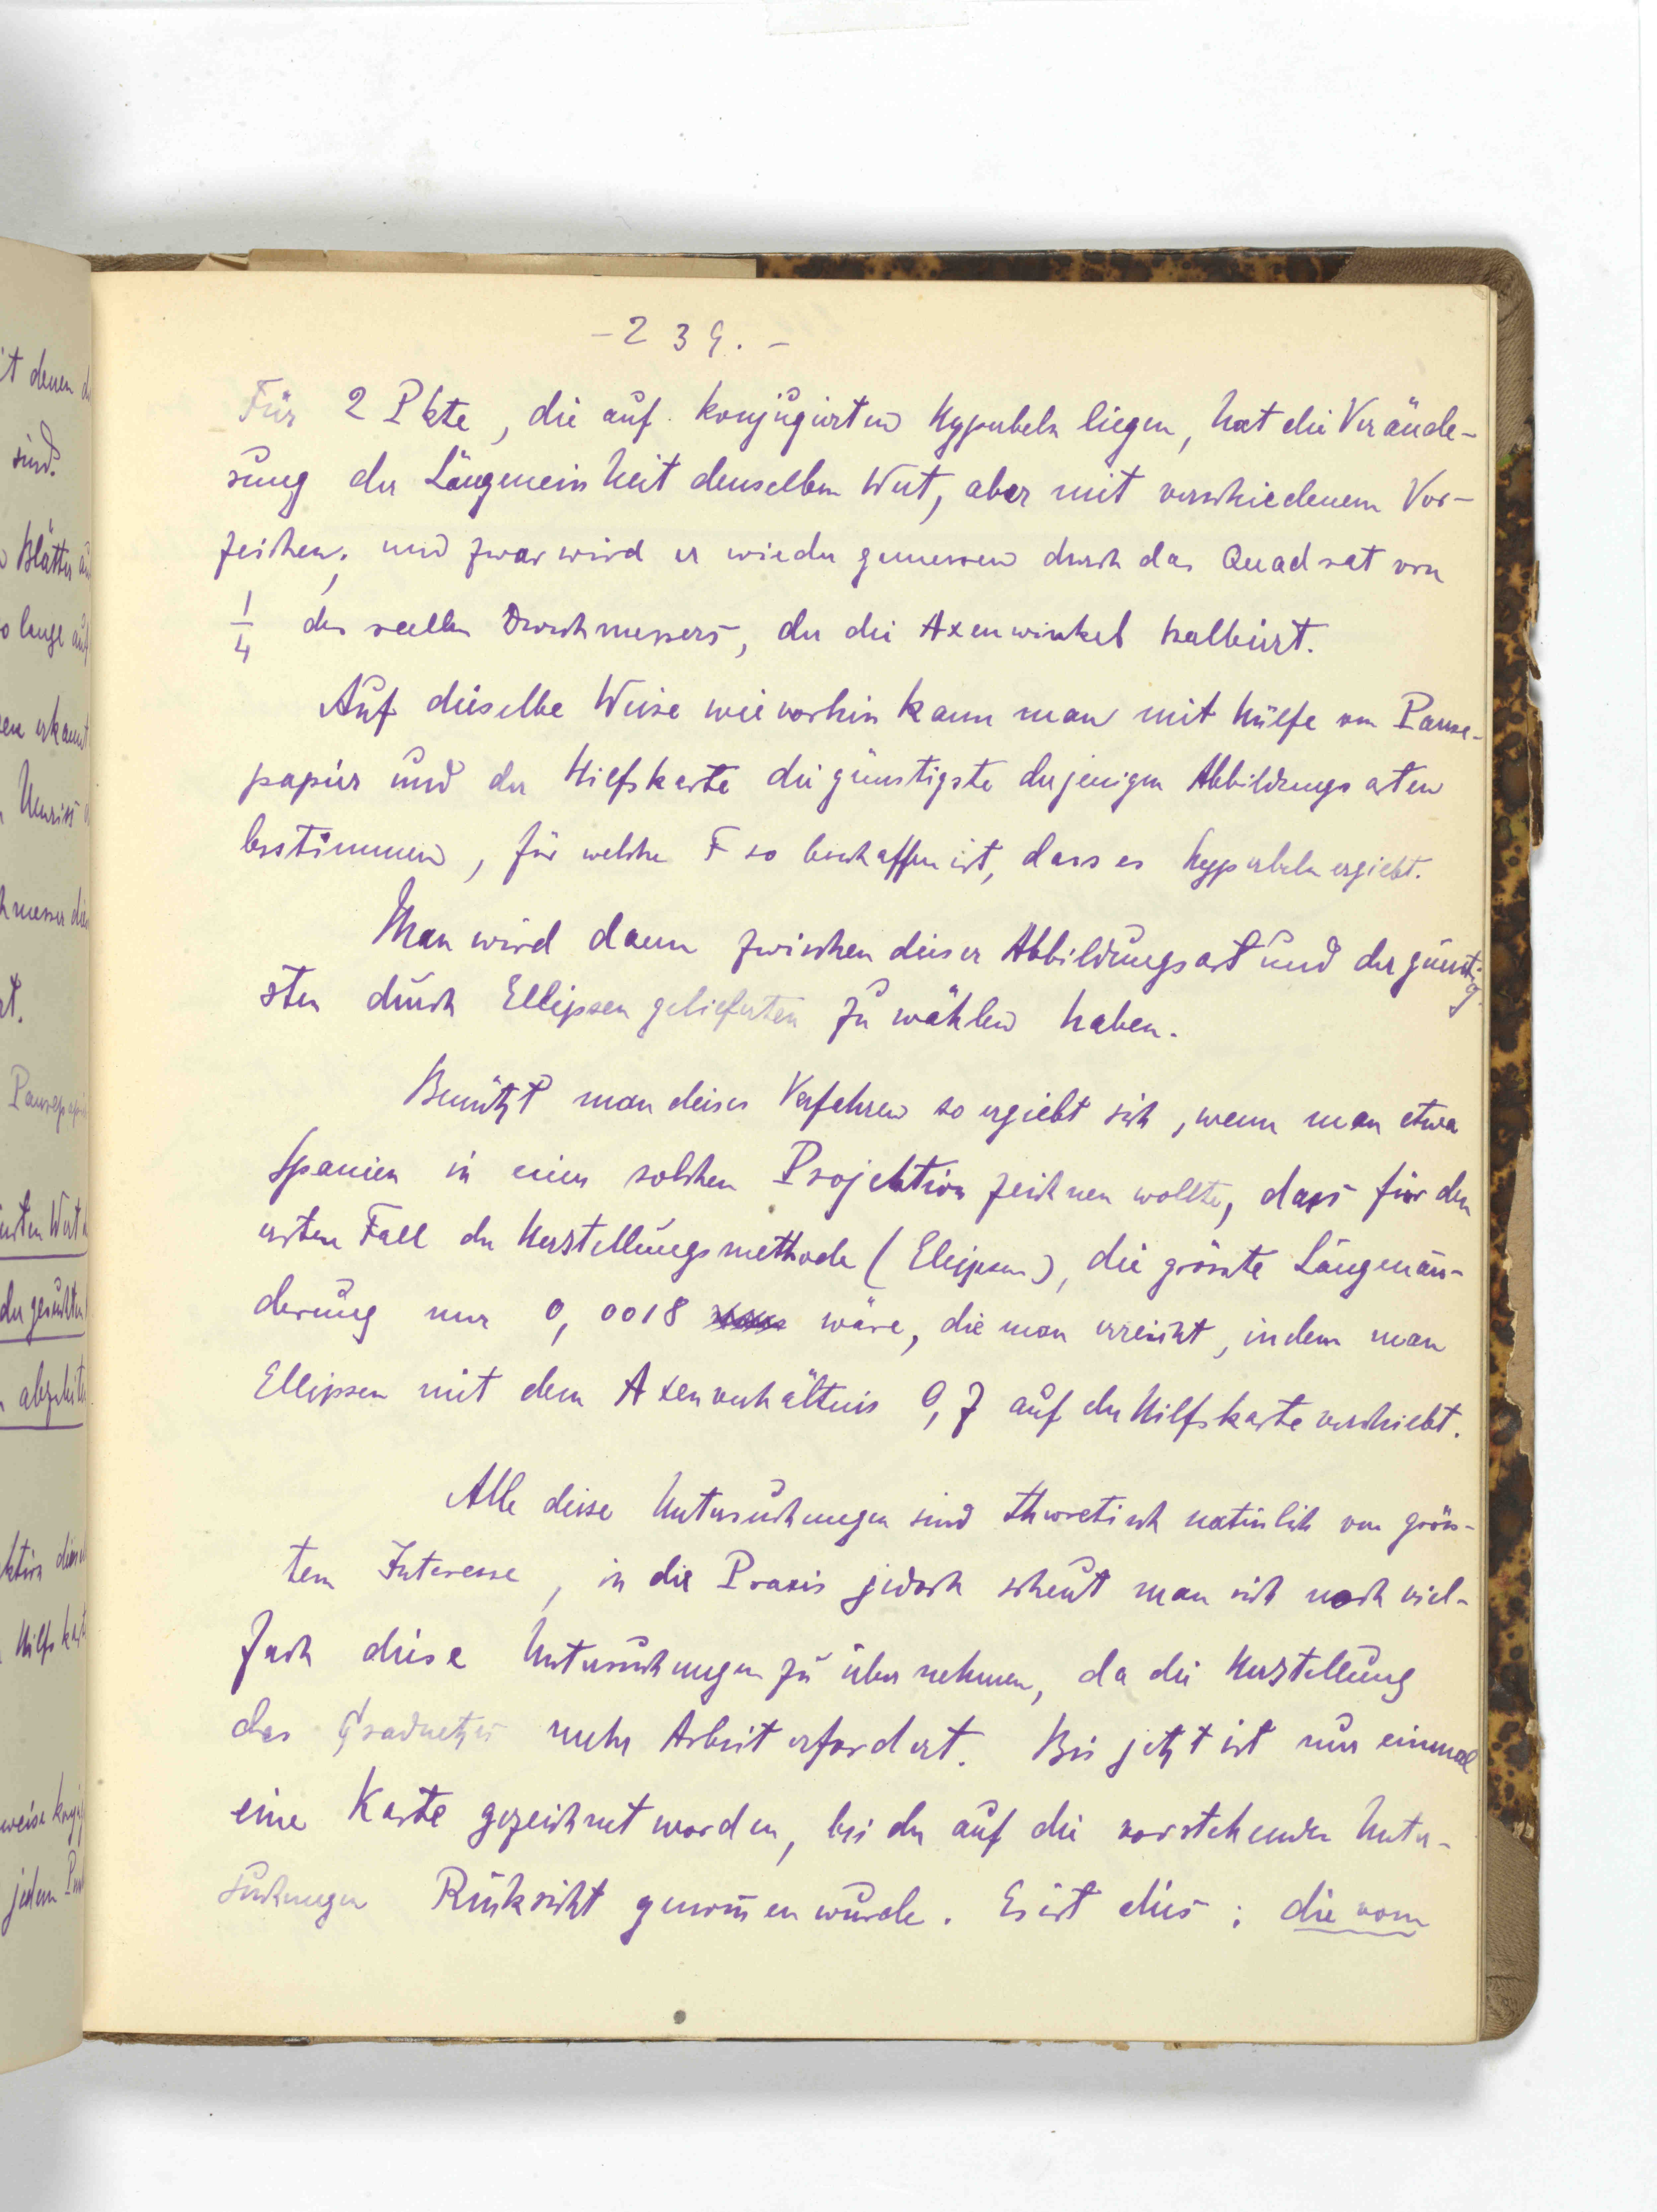 - 239. -
Für 2 Pkte, die auf konjugirten Hyperbeln liegen, hat die Verände-
rung der Längeneinheit denselben Wert, aber mit verschiedenem Vor-
zeichen; und zwar wird er wieder gemessen durch das Quadrat von
1/4 des reellen Durchmessers, der die Axenwinkel halbirt.
Auf dieselbe Weise wie vorhin kann man mit Hülfe von Pause-
papier und der Hilfskarte die günstigste derjenigen Abbildungsarten
bestimmen, für welche F so beschaffen ist, dass es Hyperbeln ergiebt.
Man wird dann zwischen dieser Abbildungsart und der günstig-
sten durch Ellipsen gelieferten zu wählen haben.
Benützt man dieses Verfahren so ergiebt sich, wenn man etwa
Spanien in einer solchen Projektion zeichnen wollte, dass für den
ersten Fall der Herstellungsmethode (Ellipsen), die grösste Längenän-
derung nur 0,0018 wäre, die man erreicht, indem man
Ellipsen mit dem Axenverhältnis 0,7 auf der Hilfskarte verschiebt.
Alle diese Untersuchungen sind theoretisch natürlich von grös-
tem Interesse, in die Praxis jedoch scheut man sich noch viel-
fach diese Untersuchungen zu übernehmen, da die Herstellung
des Gradnetzes mehr Arbeit erfordert. Bis jetzt ist nur einmal
eine Karte gezeichnet worden, bei der auf die vorstehenden Unter-
suchungen Rücksicht genom̄en wurde. Es ist dies: die vom
it denen
sind.
Blätter
so lange auf
erkannt
Umriss
Pausepapier
Wert
der gesuchten
Hilfskarte
weise
jedem